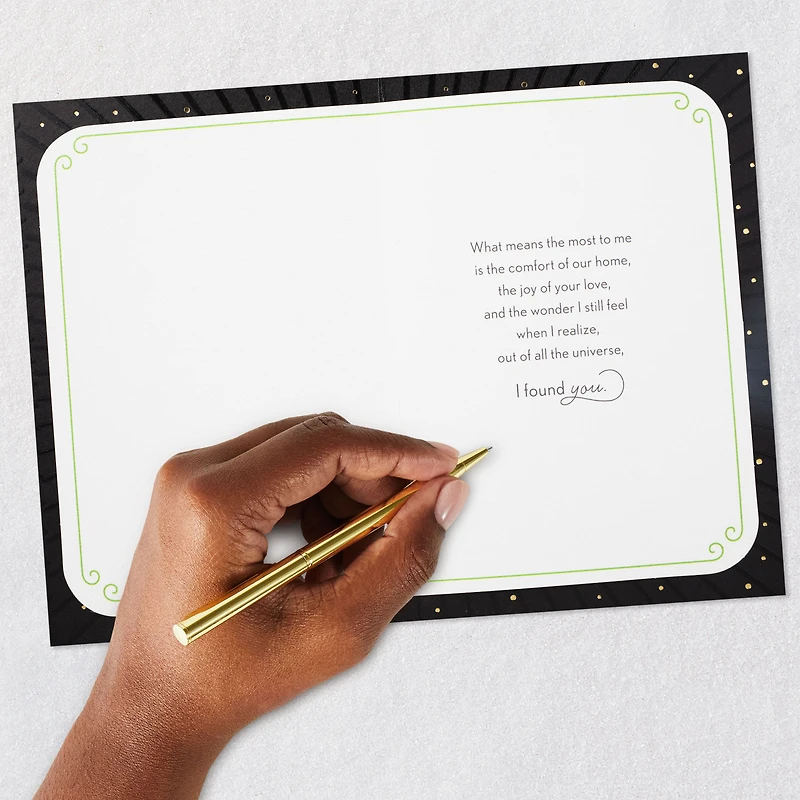 What means the most to me
is the comfort of our home,
the joy of your love,
and the wonder I still feel
when I realize,
out of all the universe,
I found you.